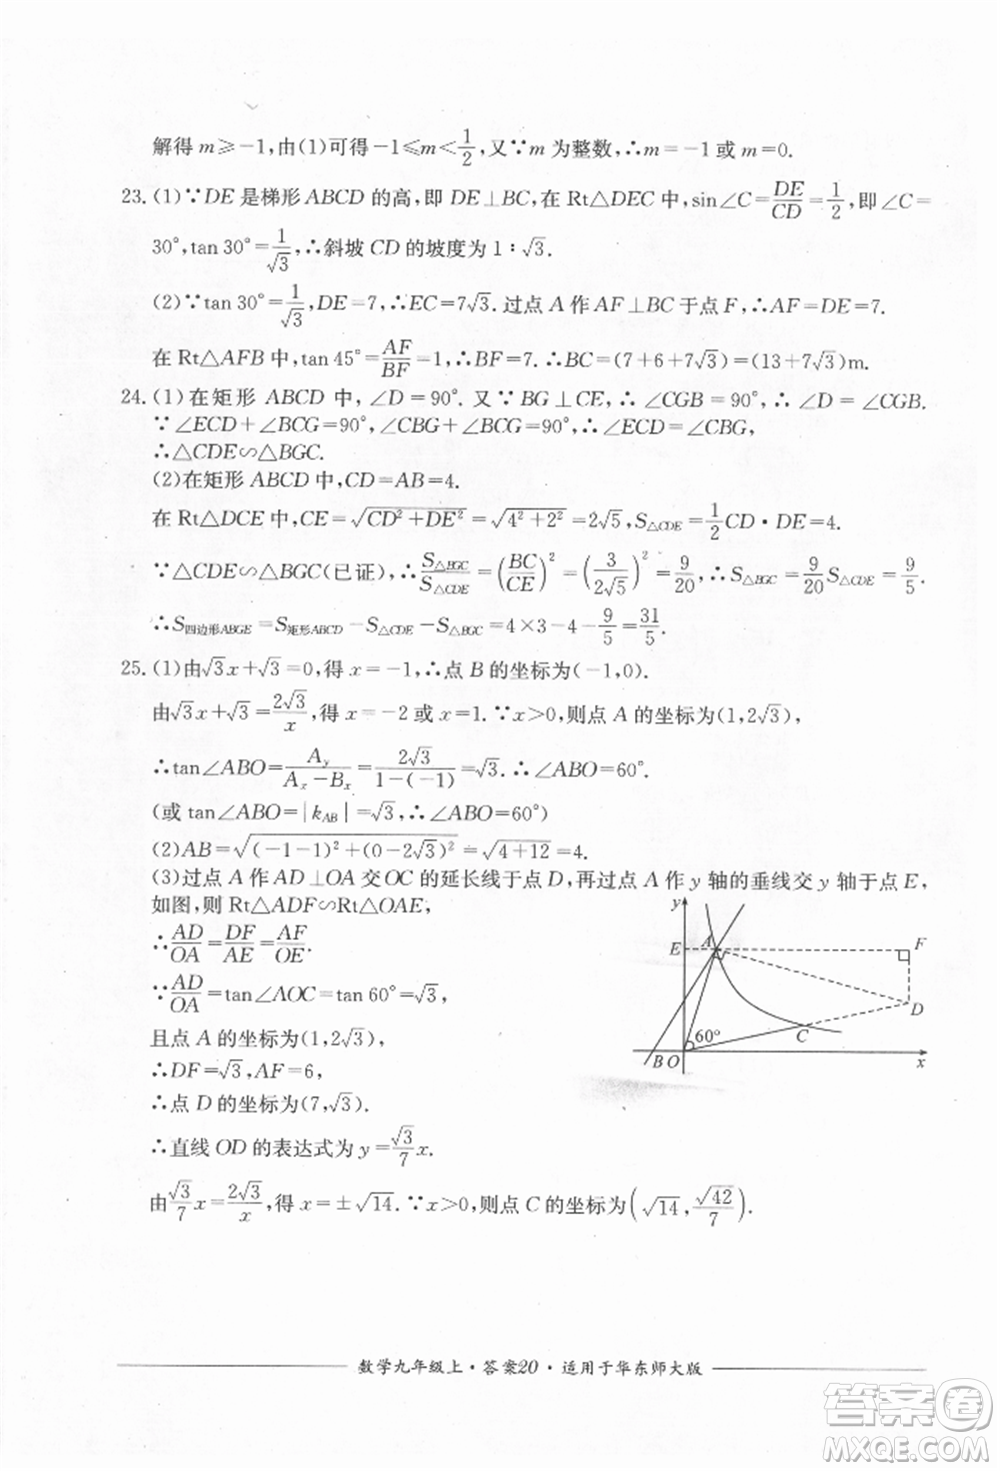 解得 m≥-1,由(1)可得-1≤m<1/2,又∵m 为整数,∴m=-1 或 m=0.
23. (1)∵DE 是梯形 ABCD 的高,即 DE⊥BC,在 Rt△DEC 中,sin∠C=DE/CD=1/2,即∠C=
30°,tan 30°=1/√3,∴斜坡 CD 的坡度为 1∶√3.
(2)∵tan 30°=1/√3,DE=7,∴EC=7√3. 过点 A 作 AF⊥BC 于点 F,∴AF=DE=7.
在 Rt△AFB 中,tan 45°=AF/BF=1,∴BF=7. ∴BC=(7+6+7√3)=(13+7√3)m.
24. (1)在矩形 ABCD 中,∠D=90°. 又∵BG⊥CE,∴∠CGB=90°,∴∠D=∠CGB.
∵∠ECD+∠BCG=90°,∠CBG+∠BCG=90°,∴∠ECD=∠CBG,
∴△CDE∽△BGC.
(2)在矩形 ABCD 中,CD=AB=4.
在 Rt△DCE 中,CE=√(CD²+DE²)=√(4²+2²)=2√5,S△CDE=1/2CD·DE=4.
∵△CDE∽△BGC(已证),∴S△BGC/S△CDE=(BC/CE)²=(3/2√5)²=9/20,∴S△BGC=9/20S△CDE=9/5.
∴S四边形ABGE=S矩形ABCD-S△CDE-S△BGC=4×3-4-9/5=31/5.
25. (1)由√3x+√3=0,得 x=-1,∴点 B 的坐标为(-1,0).
由√3x+√3=2√3/x,得 x=-2 或 x=1. ∵x>0,则点 A 的坐标为(1,2√3),
∴tan∠ABO=Ay/(Ax-Bx)=2√3/(1-(-1))=√3. ∴∠ABO=60°.
(或 tan∠ABO=|kAB|=√3,∴∠ABO=60°)
(2)AB=√((-1-1)²+(0-2√3)²)=√(4+12)=4.
(3)过点 A 作 AD⊥OA 交 OC 的延长线于点 D,再过点 A 作 y 轴的垂线交 y 轴于点 E,
如图,则 Rt△ADF∽Rt△OAE,
∴AD/OA=DF/AE=AF/OE.
∵AD/OA=tan∠AOC=tan 60°=√3,
且点 A 的坐标为(1,2√3),
∴DF=√3,AF=6,
∴点 D 的坐标为(7,√3).
∴直线 OD 的表达式为 y=√3/7x.
由√3/7x=2√3/x,得 x=±√14. ∵x>0,则点 C 的坐标为(√14,√42/7).
y
E A F
D
60° C
B O x
数学九年级上·答案20·适用于华东师大版
答案卷
MXQE.COM